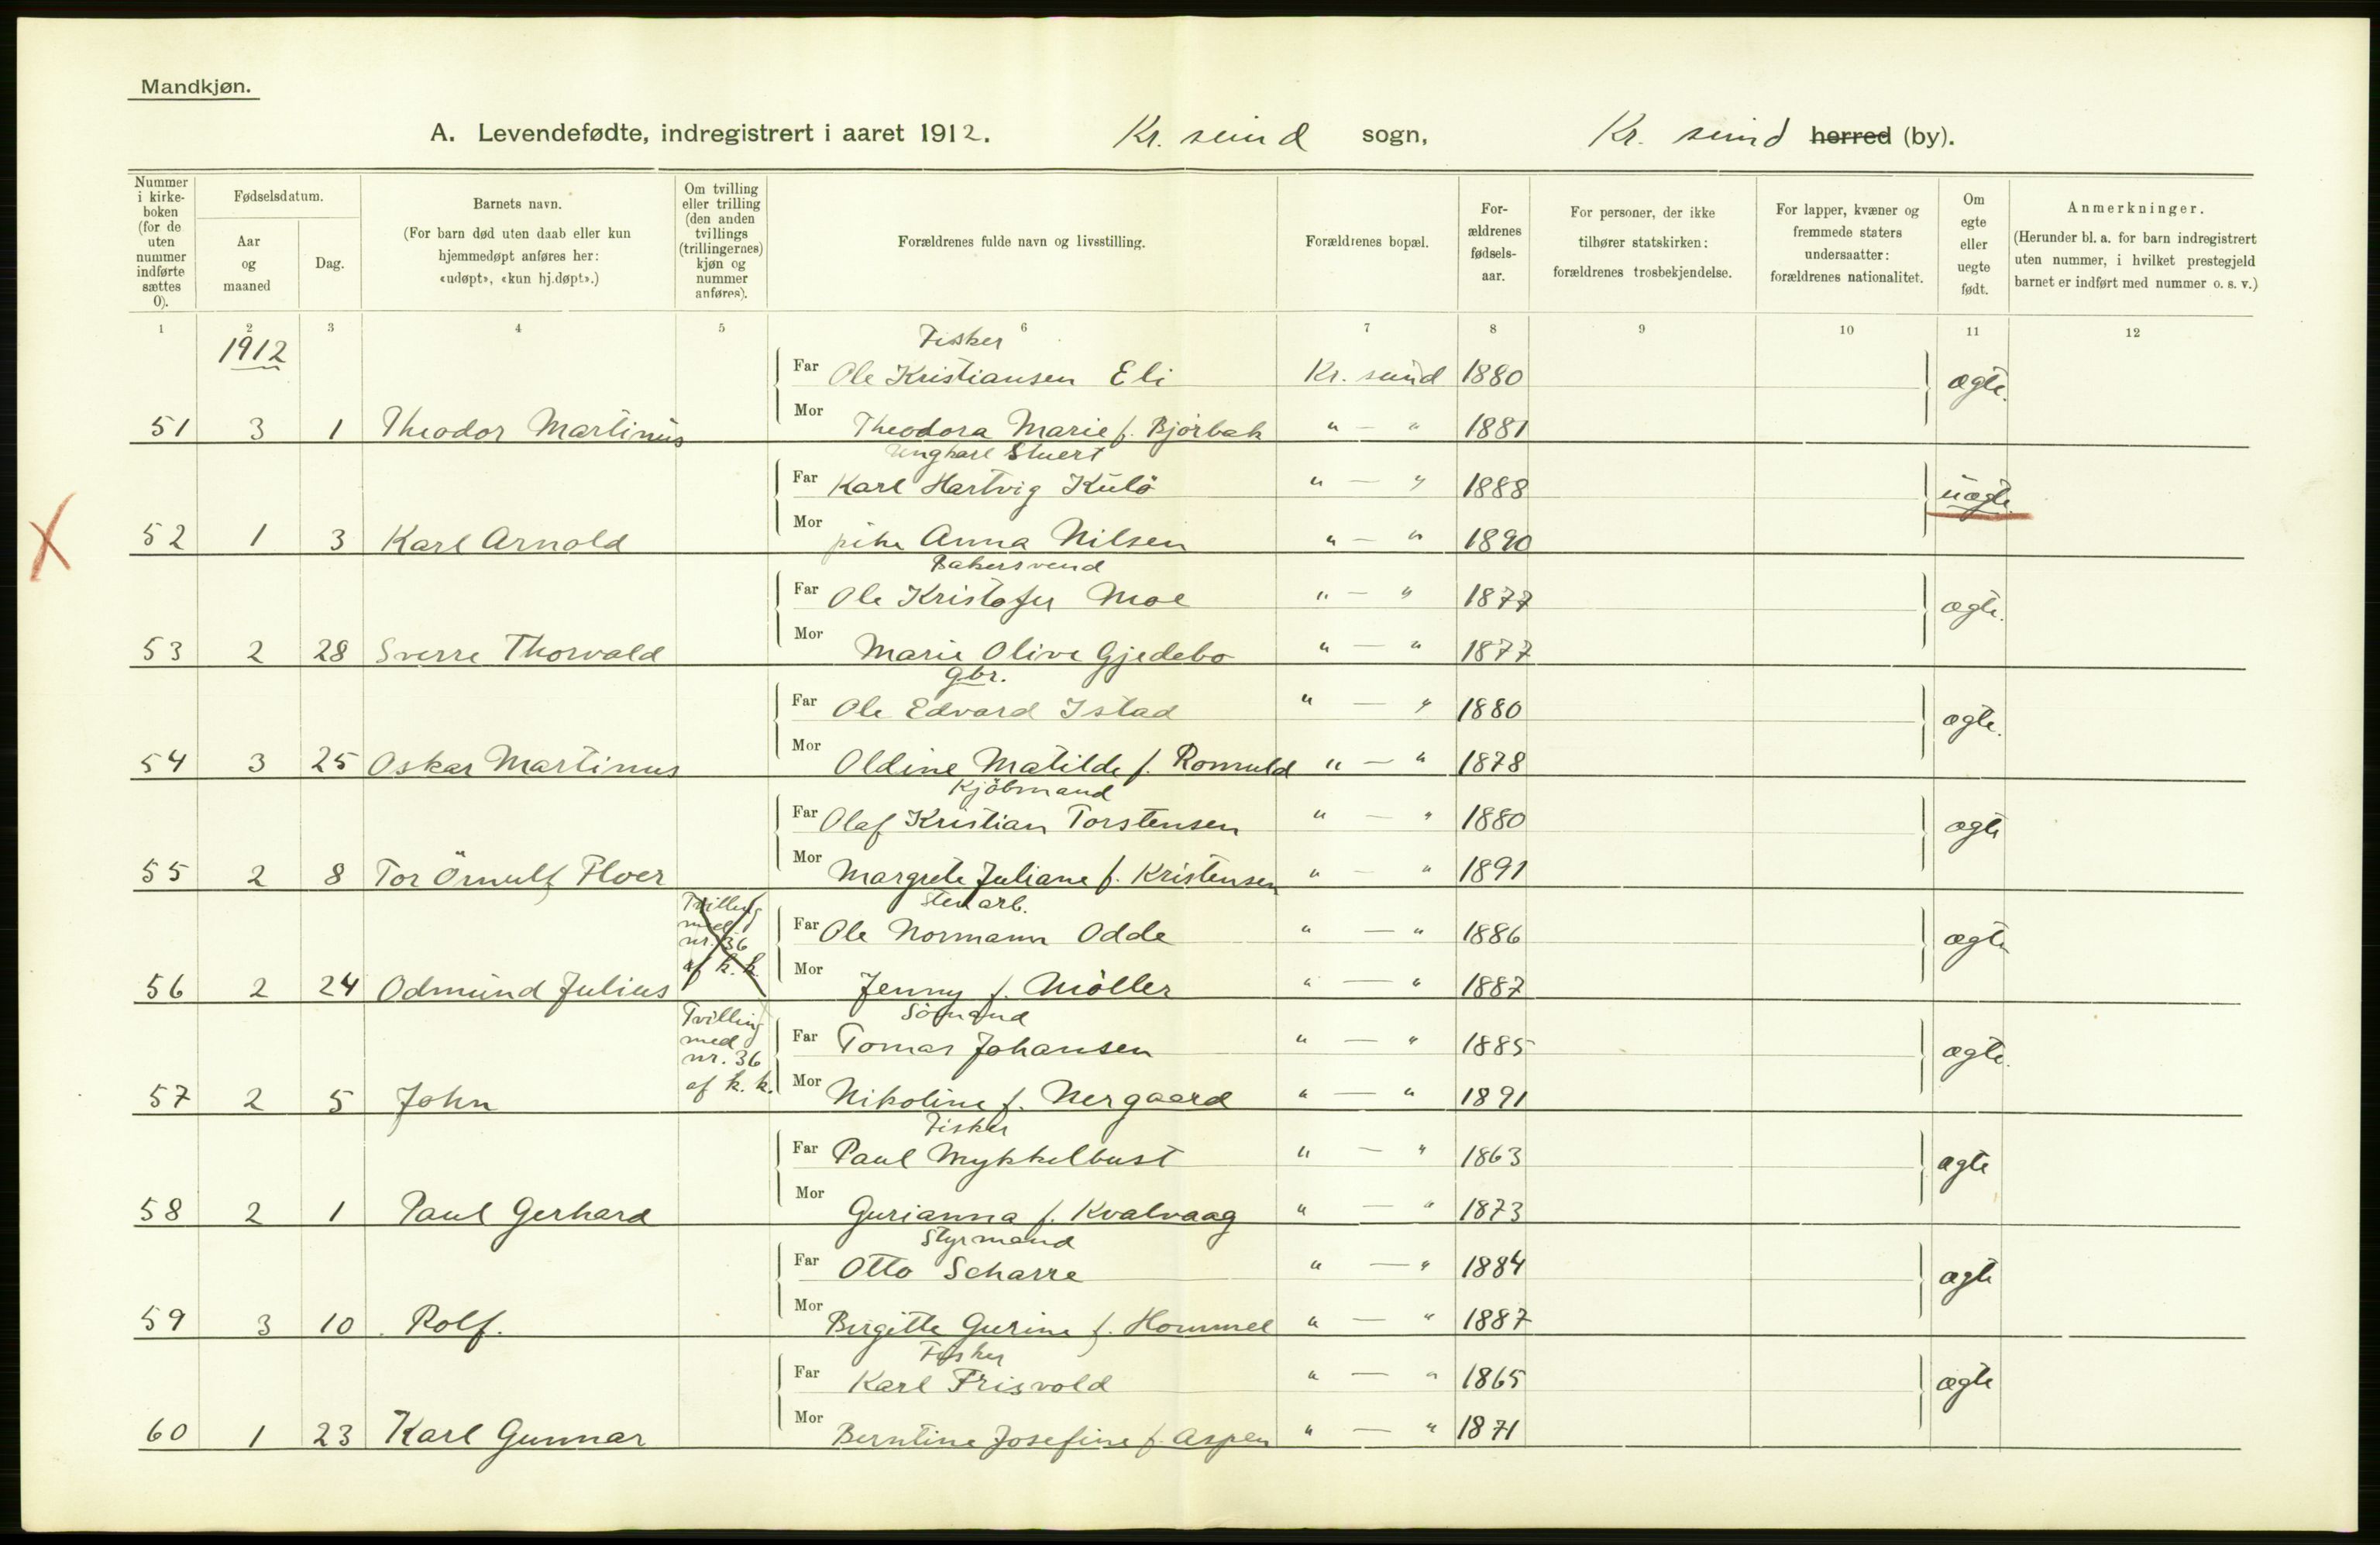 Mandkjøn.
A. Levendefødte, indregistrert i aaret 1912. Kr. sund sogn, Kr. sund herred (by).
Nummer i kirke-boken (for de uten nummer indførte sættes 0).
Fødselsdatum.
Aar og maaned
Dag.
Barnets navn.
(For barn død uten daab eller kun hjemmedøpt anføres her: «udøpt», «kun hj.døpt».)
Om tvilling eller trilling (den anden tvillings (trillingernes) kjøn og nummer anføres).
Forældrenes fulde navn og livsstilling.
Forældrenes bopæl.
For-ældrenes fødsels-aar.
For personer, der ikke tilhører statskirken: forældrenes trosbekjendelse.
For lapper, kvæner og fremmede staters undersaatter: forældrenes nationalitet.
Om egte eller uegte født.
Anmerkninger.
(Herunder bl. a. for barn indregistrert uten nummer, i hvilket prestegjeld barnet er indført med nummer o. s. v.)
1 2 3 4 5 6 7 8 9 10 11 12
1912
Fisker
Far Ole Kristiansen Eli Kr. sund 1880 ægte.
51 3 1 Theodor Martinus Mor Theodora Marie f. Bjørbak " — " 1881
Ungkarl Stuert
Far Karl Hartvig Kulö " — " 1888 uægte.
52 1 3 Karl Arnold Mor pike Anna Nilsen " — " 1890
Bakersvend
Far Ole Kristofer Moe " — " 1877 ægte.
53 2 28 Sverre Thorvald Mor Marie Olive Gjedebo " — " 1877
Gbr.
Far Ole Edvard Istad " — " 1880 ægte.
54 3 25 Oskar Martinus Mor Oldine Matilde f. Romuld " — " 1878
Kjöbmand
Far Olaf Kristian Torstensen " — " 1880 ægte
55 2 8 Tor Örnulf Floer Mor Margrete Juliane f. Kristensen " — " 1891
Tvilling med nr. 36 af k. k.
Sten arb.
Far Ole Normann Odde " — " 1886 ægte
56 2 24 Odmund Julius Mor Jenny f. Möller " — " 1887
Tvilling med nr. 36 af k. k.
Sömand
Far Tomas Johansen " — " 1885 ægte.
57 2 5 John Mor Nikoline f. Nergaard " — " 1891
Fisker
Far Paul Mykkelbust " — " 1863 ægte
58 2 1 Paul Gerhard Mor Gurianna f. Kvalvaag " — " 1873
Styrmand
Far Otto Scharre " — " 1884 ægte
59 3 10 Rolf. Mor Birgitte Gurine f. Hommel " — " 1887
Fisker
Far Karl Frisvold " — " 1865 ægte
60 1 23 Karl Gunnar Mor Berntine Josefine f. Aspen " — " 1871